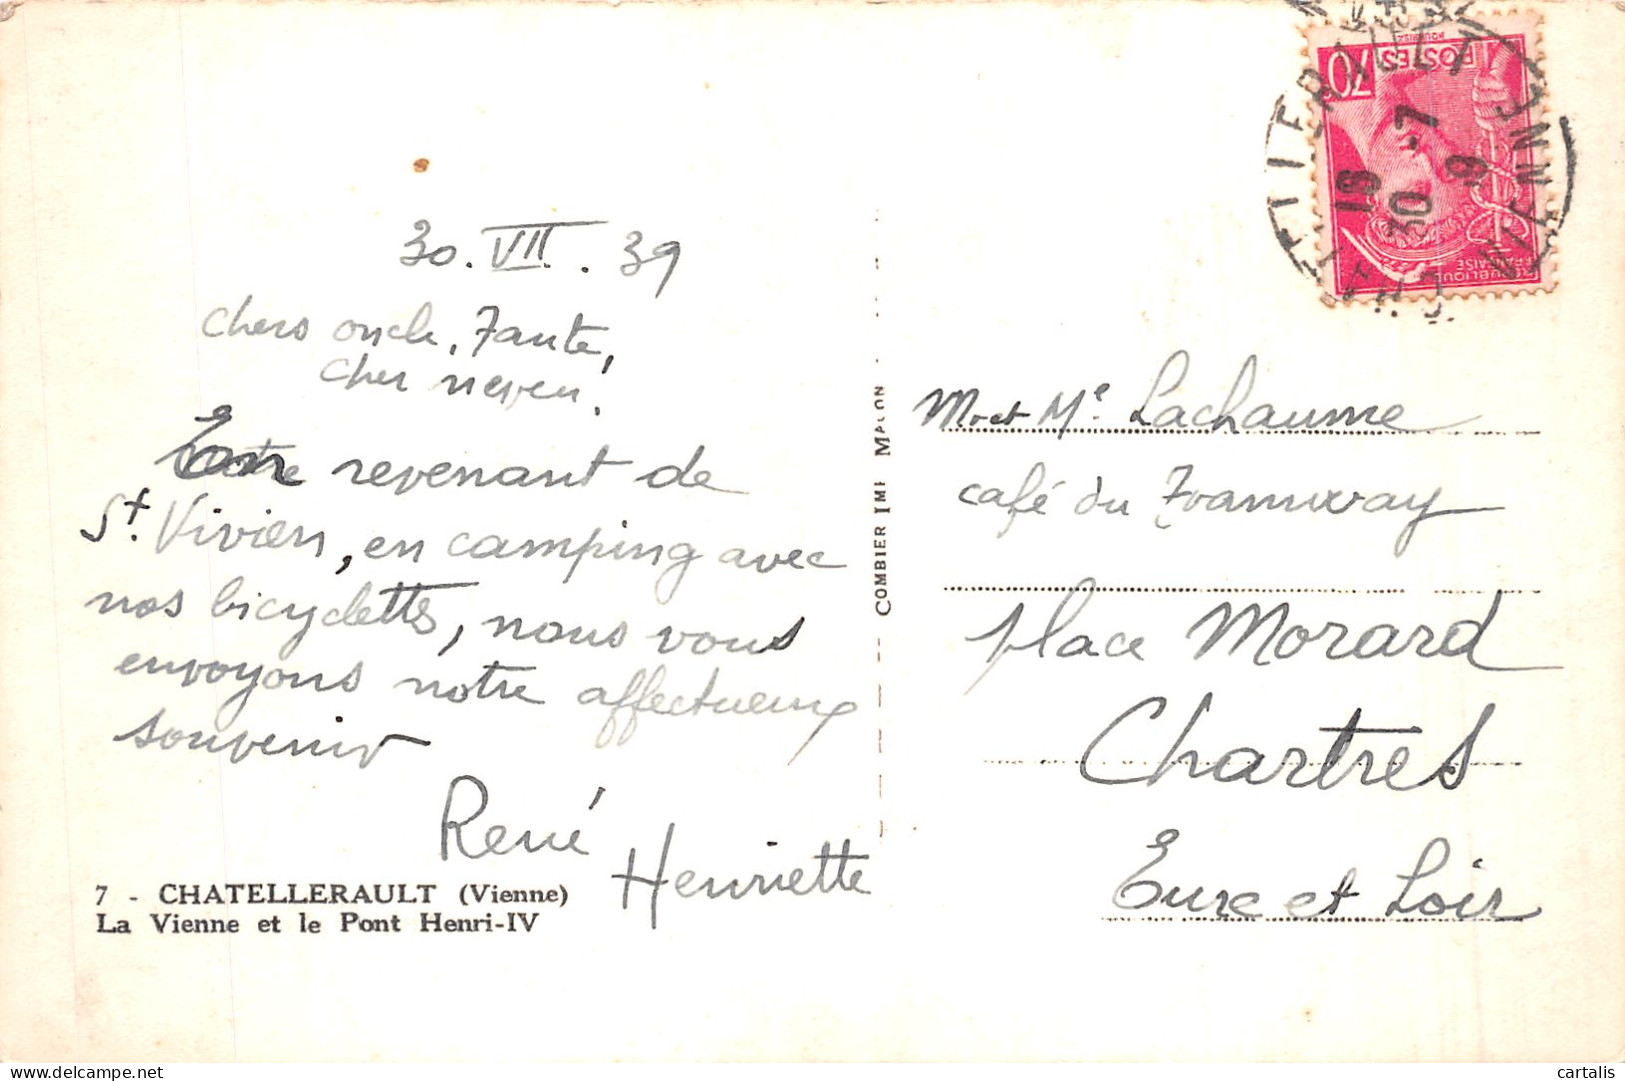 30.VII.39
Chers oncle, Tante,
cher neveu!
revenant de
St. Vivien, en camping avec
nos bicyclettes, nous vous
envoyons notre affectueux
souvenir
René
Henriette
7 - CHATELLERAULT (Vienne)
La Vienne et le Pont Henri-IV
COMBIER IMP MACON
70c
POSTES
REPUBLIQUE
FRANCAISE
CHATELLERAULT
18
30 -7
9
VIENNE
Mr et Me Lachaume
café du Tramway
place Morard
Chartres
Eure et Loir
cartalis
www.delcampe.net